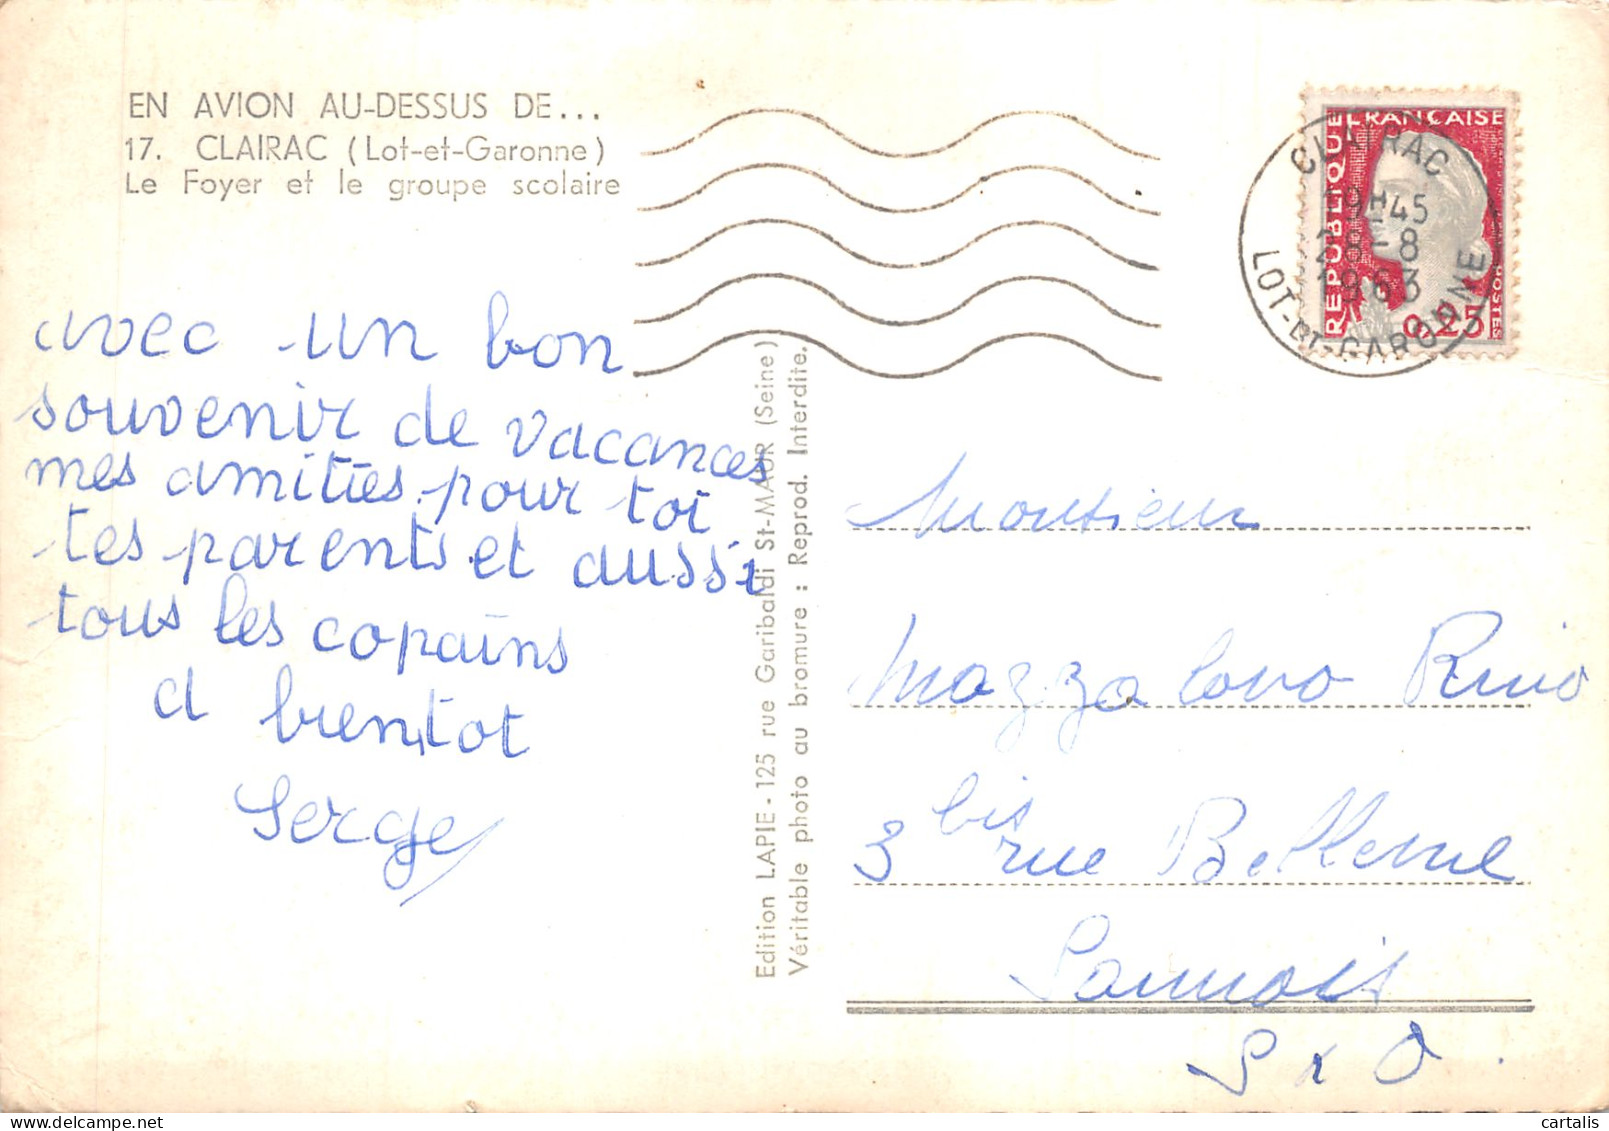 EN AVION AU-DESSUS DE...
17. CLAIRAC (Lot-et-Garonne)
Le Foyer et le groupe scolaire
avec un bon
souvenir de vacances
mes amitiés pour toi
tes parents et aussi
tous les copains
a bientot
Serge
Edition LAPIE - 125 rue Garibaldi St-MAUR (Seine)
Véritable photo au bromure : Reprod. Interdite.
RÉPUBLIQUE FRANÇAISE
POSTES
0,25
CLAIRAC
19H45
28-8
1963
LOT-ET-GARONNE
Monsieur
Mazzalovo Rino
3 bis rue Bellevue
Sannois
S x O.
cartalis